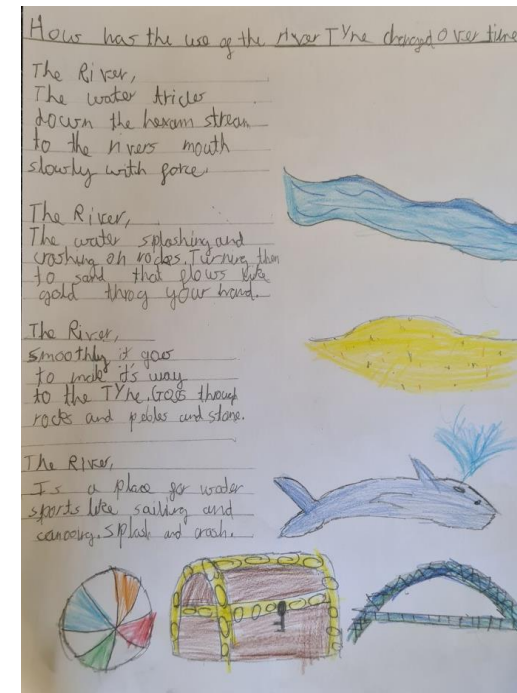 How has the use of the river TYne changed over time
The River,
The water tricles
down the hexam stream
to the rivers mouth
slowly with force.
The River,
The water splashing and
crashing on rockes. Turning them
to sand that flows like
gold throg your hand.
The River,
smoothly it gow
to make it's way
to the TYne. Goes through
rocks and pebles and stone.
The River,
Is a place for water
sports like sailing and
canoeing. Splash and crash.